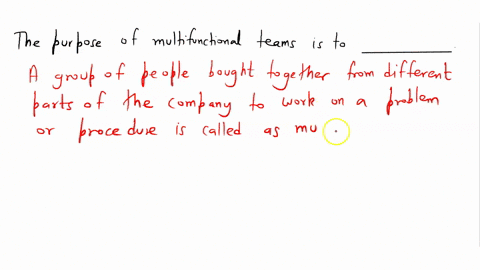 The purpose of multifunctional teams is to __________.
A group of people bought together from different
parts of the company to work on a problem
or procedure is called as mu